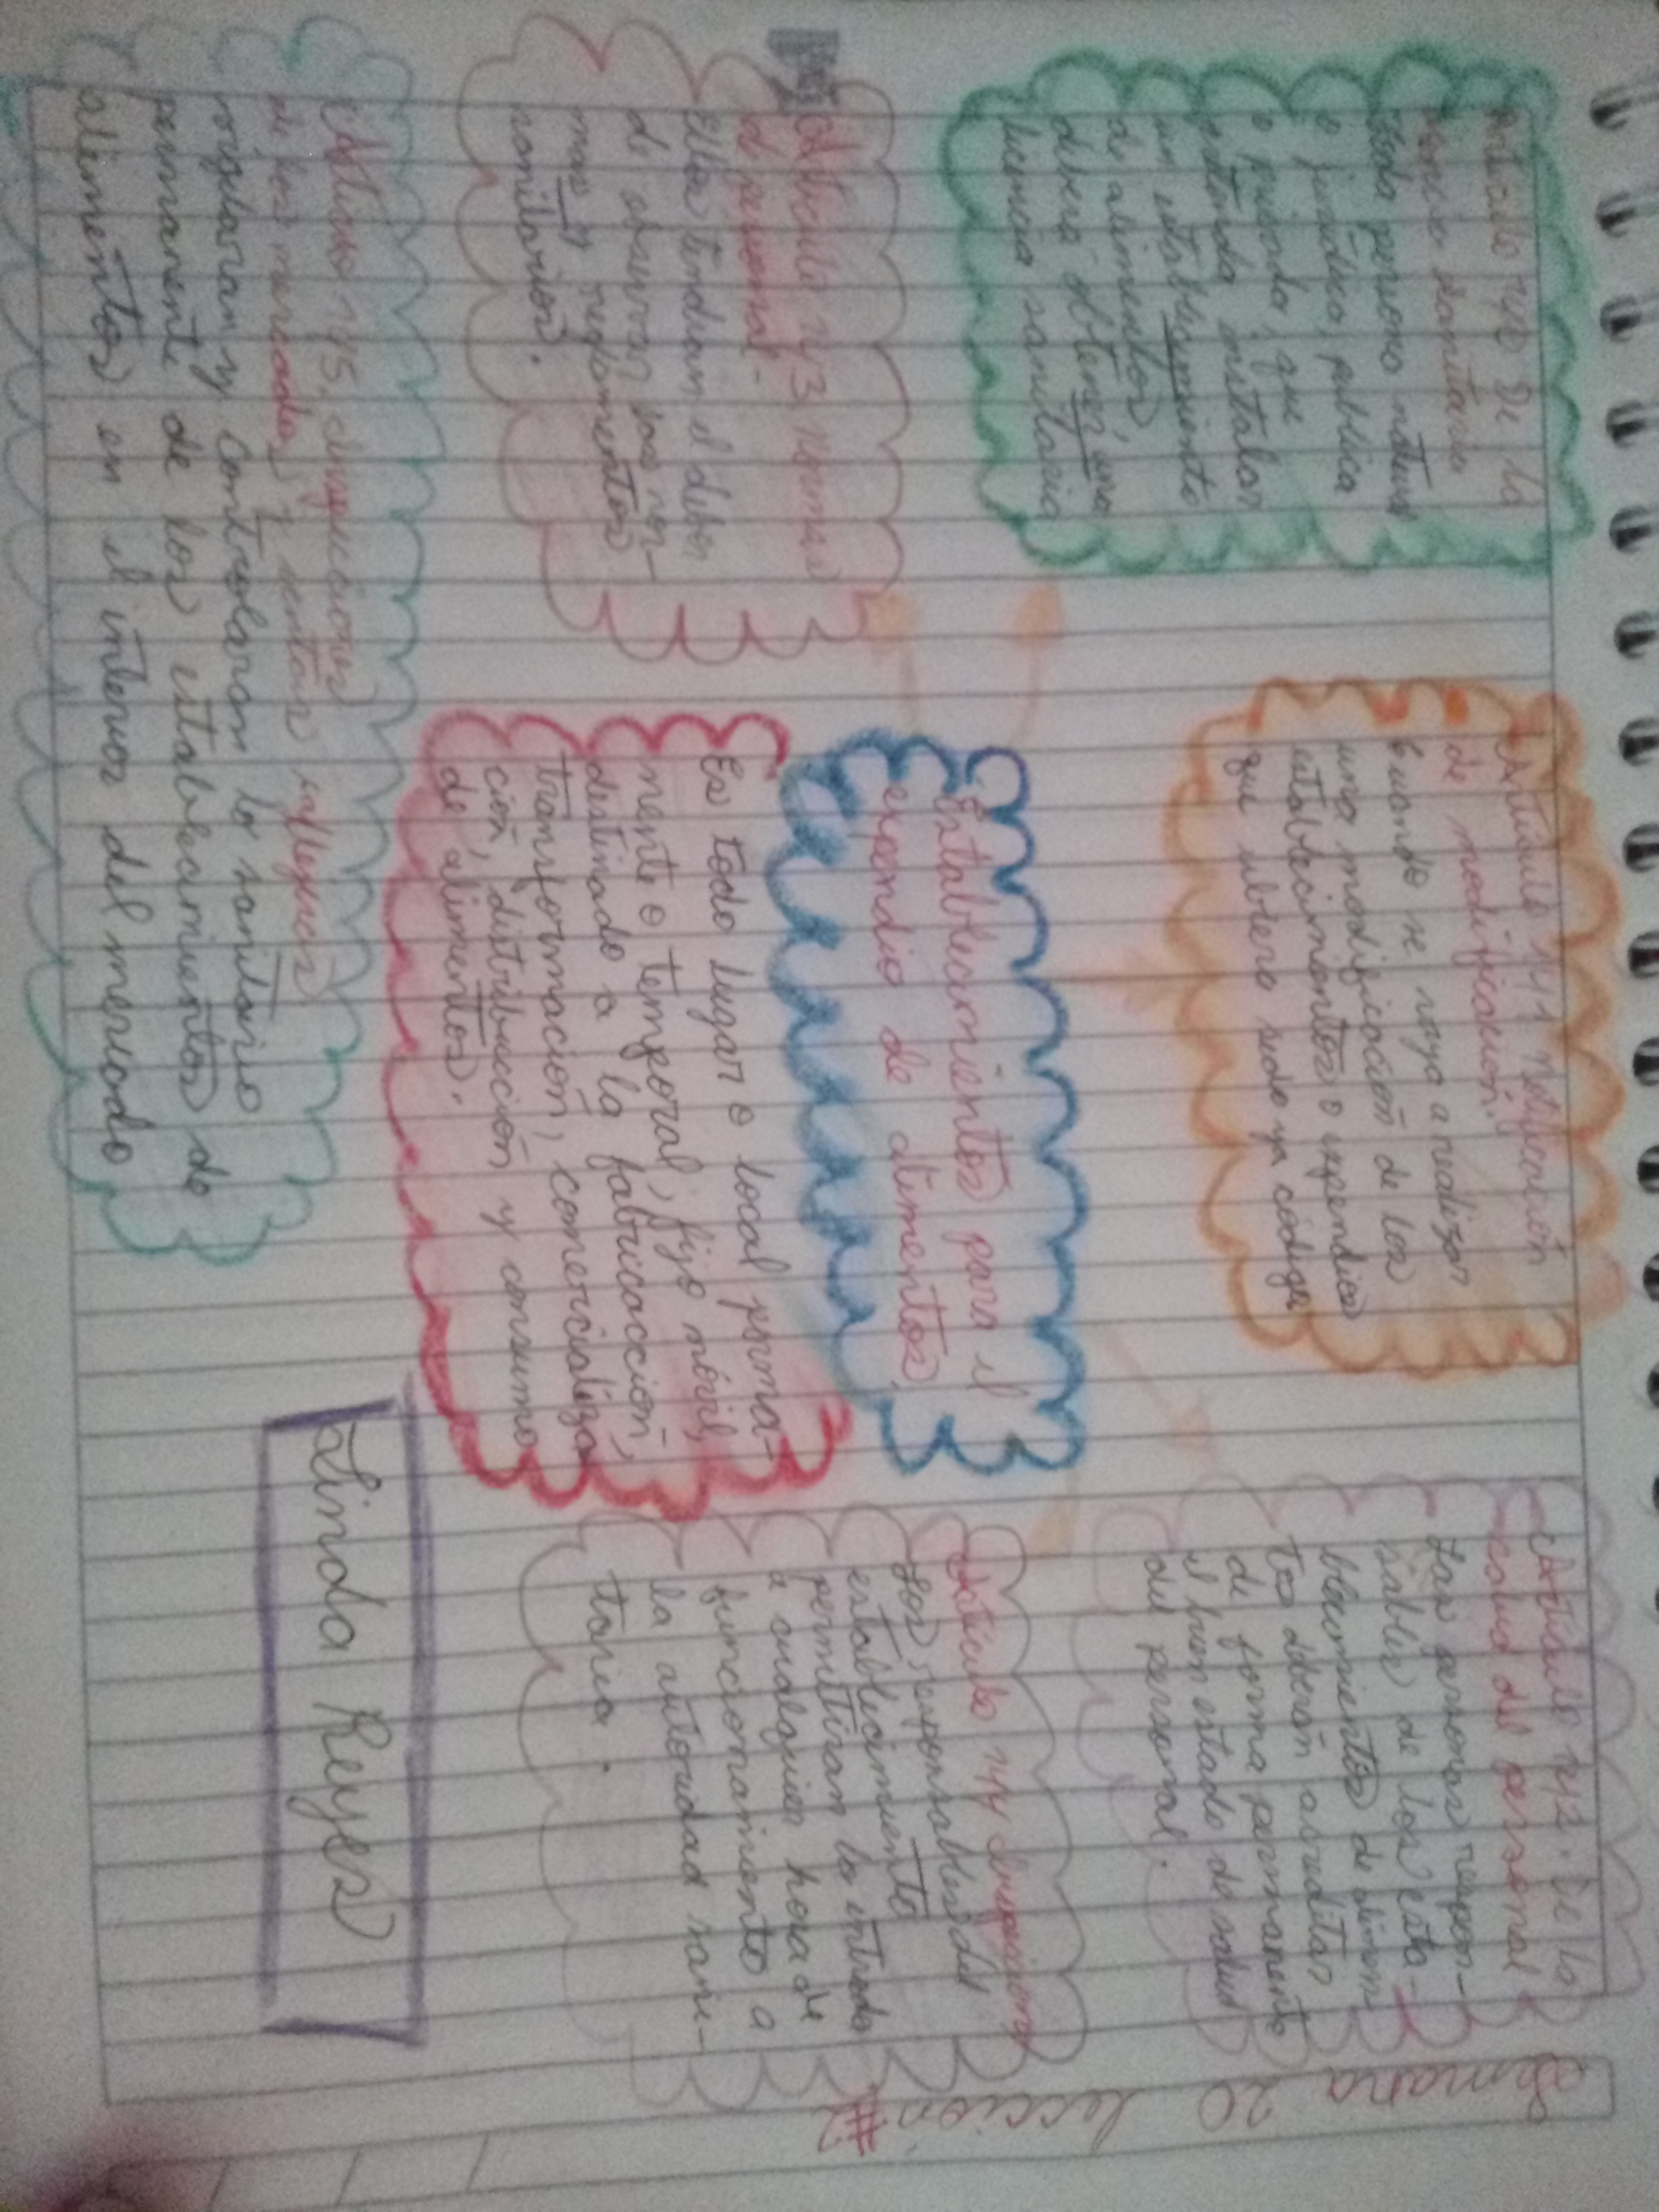 Semana 20 lección #2
Artículo 140 De la
Toda persona natural
o jurídica, pública
o privada, que
pretenda instalar
un establecimiento
de alimentos,
deberá obtener, una
licencia sanitaria
Artículo 141 Notificación
de modificación.
Cuando se vaya a realizar
una modificación de los
establecimientos o expendios
que
Artículo 142. De la
salud del personal
Las personas respon-
sables de los esta-
blecimientos de alimen
tos deberán acreditar
de forma permanente
el buen estado de salud
del personal.
Establecimientos para el
expendio de alimentos,
Es todo lugar o local perma-
nente o temporal, fijo móvil,
destinado a la fabricacción,
transformación, comercializa
ción, distribucción y consumo
de alimentos.
Artículo 143 normas
al personal.
Ellos tendran el deber
de observar las nor-
mas y reglamentos
sanitarios.
Artículo 144 inspecciones
Los responsables del
establecimiento
permitiran la entrada
a cualquier hora de
funcionamiento a
la autoridad sani-
taria.
Artículo 145,
de los mercados,
regularan y controlaram lo sanitario
permanente de los establecimientos de
alimentos en el interior del mercado
Linda Reyes